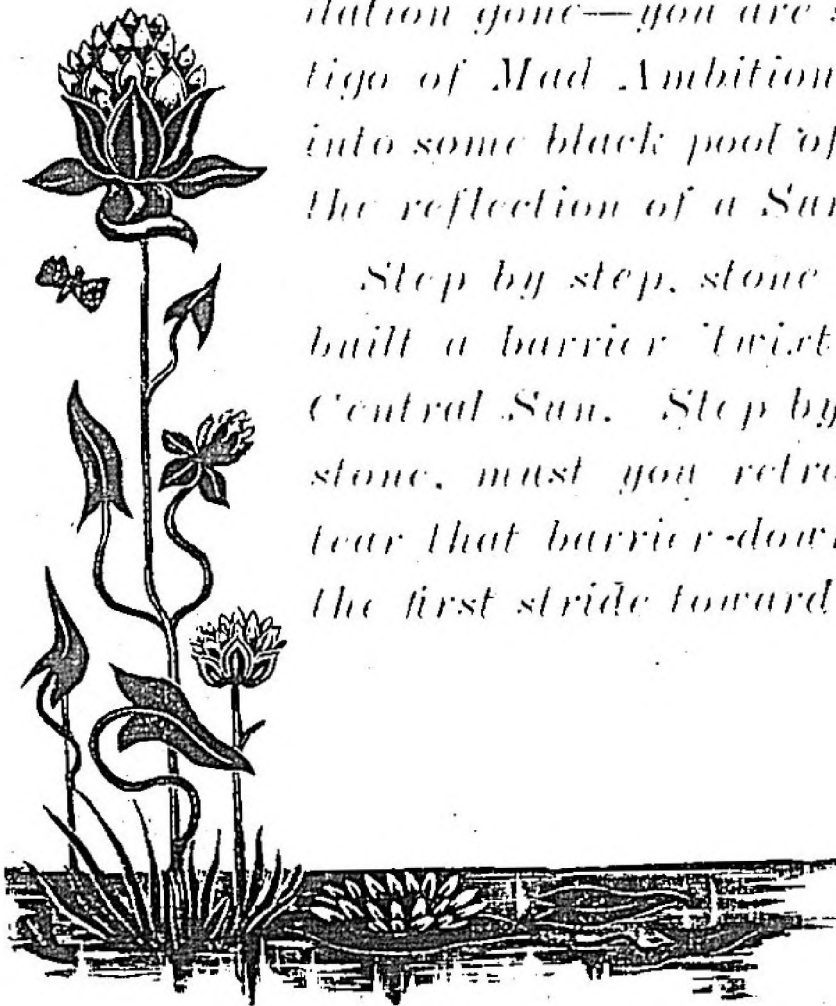 dation gone—you are s
tigo of Mad Ambition
into some black pool of
the reflection of a Sun
Step by step, stone
built a barrier 'twixt
Central Sun. Step by
stone, must you retra
tear that barrier down
the first stride toward